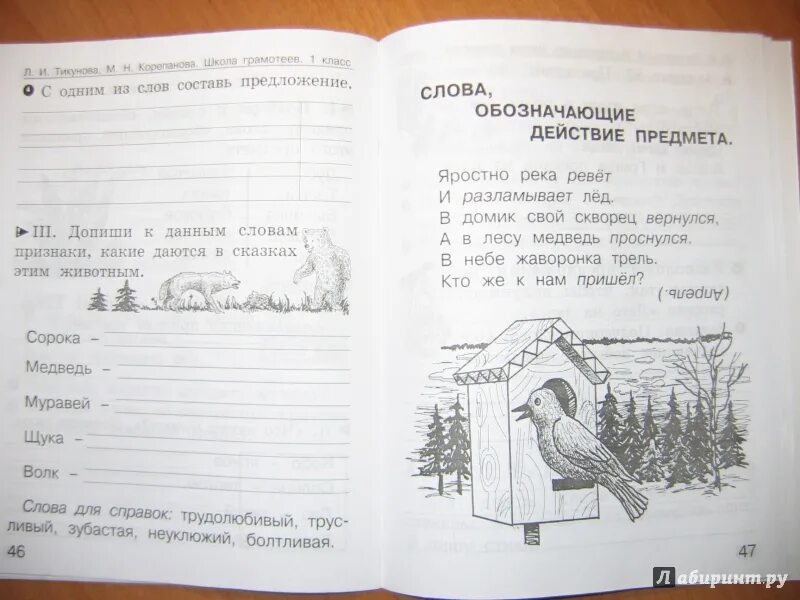 Л. И. Тикунова, М. Н. Корепанова. Школа грамотеев. 1 класс
4 С одним из слов составь предложение.
III. Допиши к данным словам
признаки, какие даются в сказках
этим животным.
Сорока –
Медведь –
Муравей –
Щука –
Волк –
Слова для справок: трудолюбивый, трус-
ливый, зубастая, неуклюжий, болтливая.
46
СЛОВА,
ОБОЗНАЧАЮЩИЕ
ДЕЙСТВИЕ ПРЕДМЕТА.
Яростно река ревёт
И разламывает лёд.
В домик свой скворец вернулся,
А в лесу медведь проснулся.
В небе жаворонка трель.
Кто же к нам пришёл?
(Апрель.)
47
Лабиринт.ру